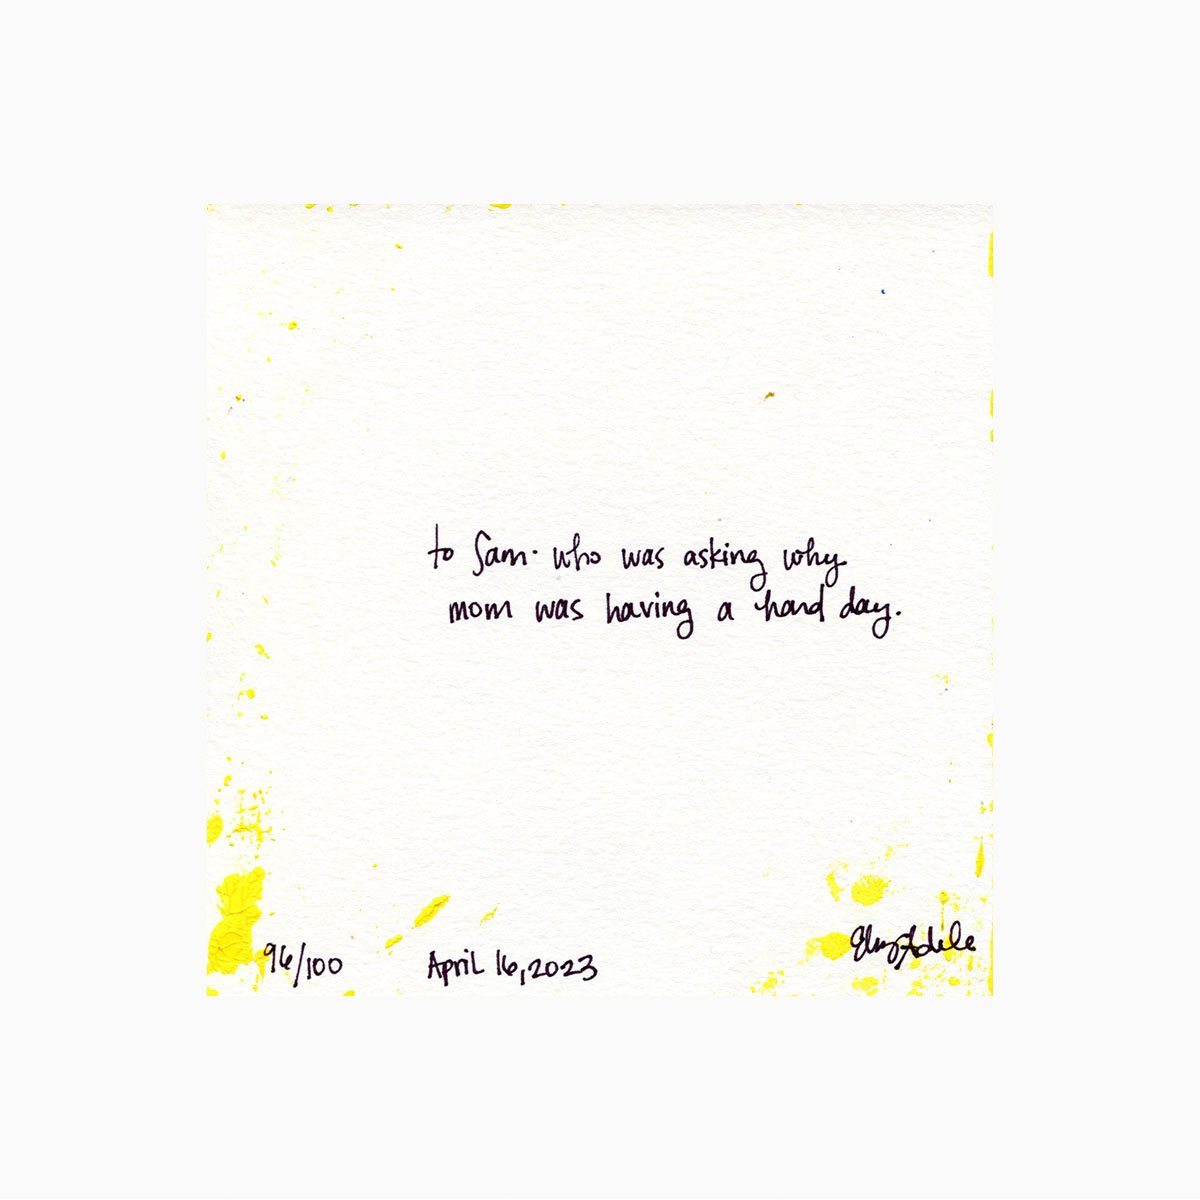 to Sam. who was asking why
mom was having a hard day.
96/100 April 16, 2023